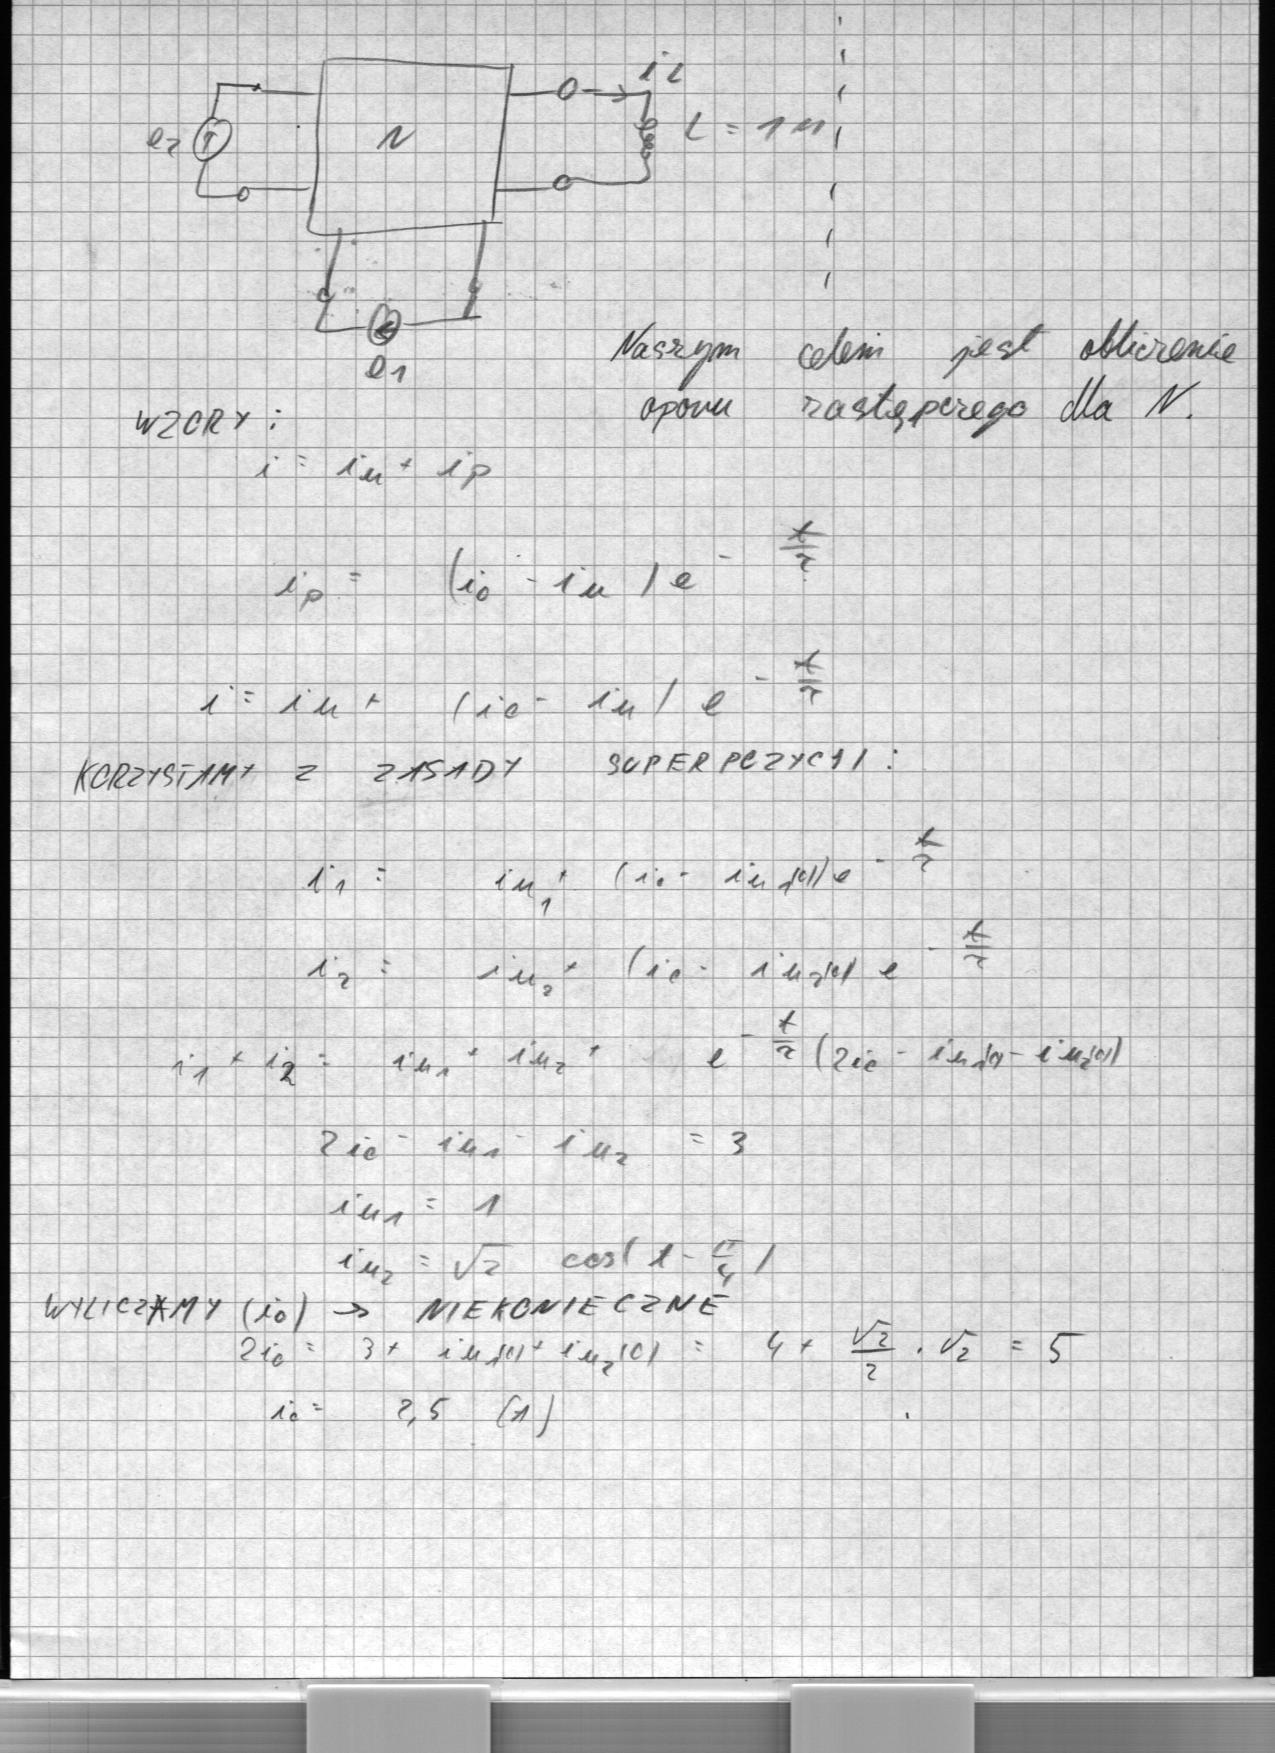 iL
e2
N
L = 1H
e1
Naszym celem jest obliczenie
oporu zastępczego dla N.
WZORY:
i = iu + ip
ip = (i0 - iu) e^-t/τ
i = iu + (i0 - iu) e^-t/τ
KORZYSTAMY Z ZASADY SUPERPOZYCJI:
i1 = iu1 + (i0 - iu1(0)) e^-t/τ
i2 = iu2 + (i0 - iu2(0)) e^-t/τ
i1 + i2 = iu1 + iu2 + e^-t/τ (2i0 - iu1(0) - iu2(0))
2i0 - iu1 - iu2 = 3
iu1 = 1
iu2 = √2 cos(t - π/4)
WYLICZAMY (i0) → NIEKONIECZNE
2i0 = 3 + iu1(0) + iu2(0) = 4 + √2/2 · √2 = 5
i0 = 2,5 (A)